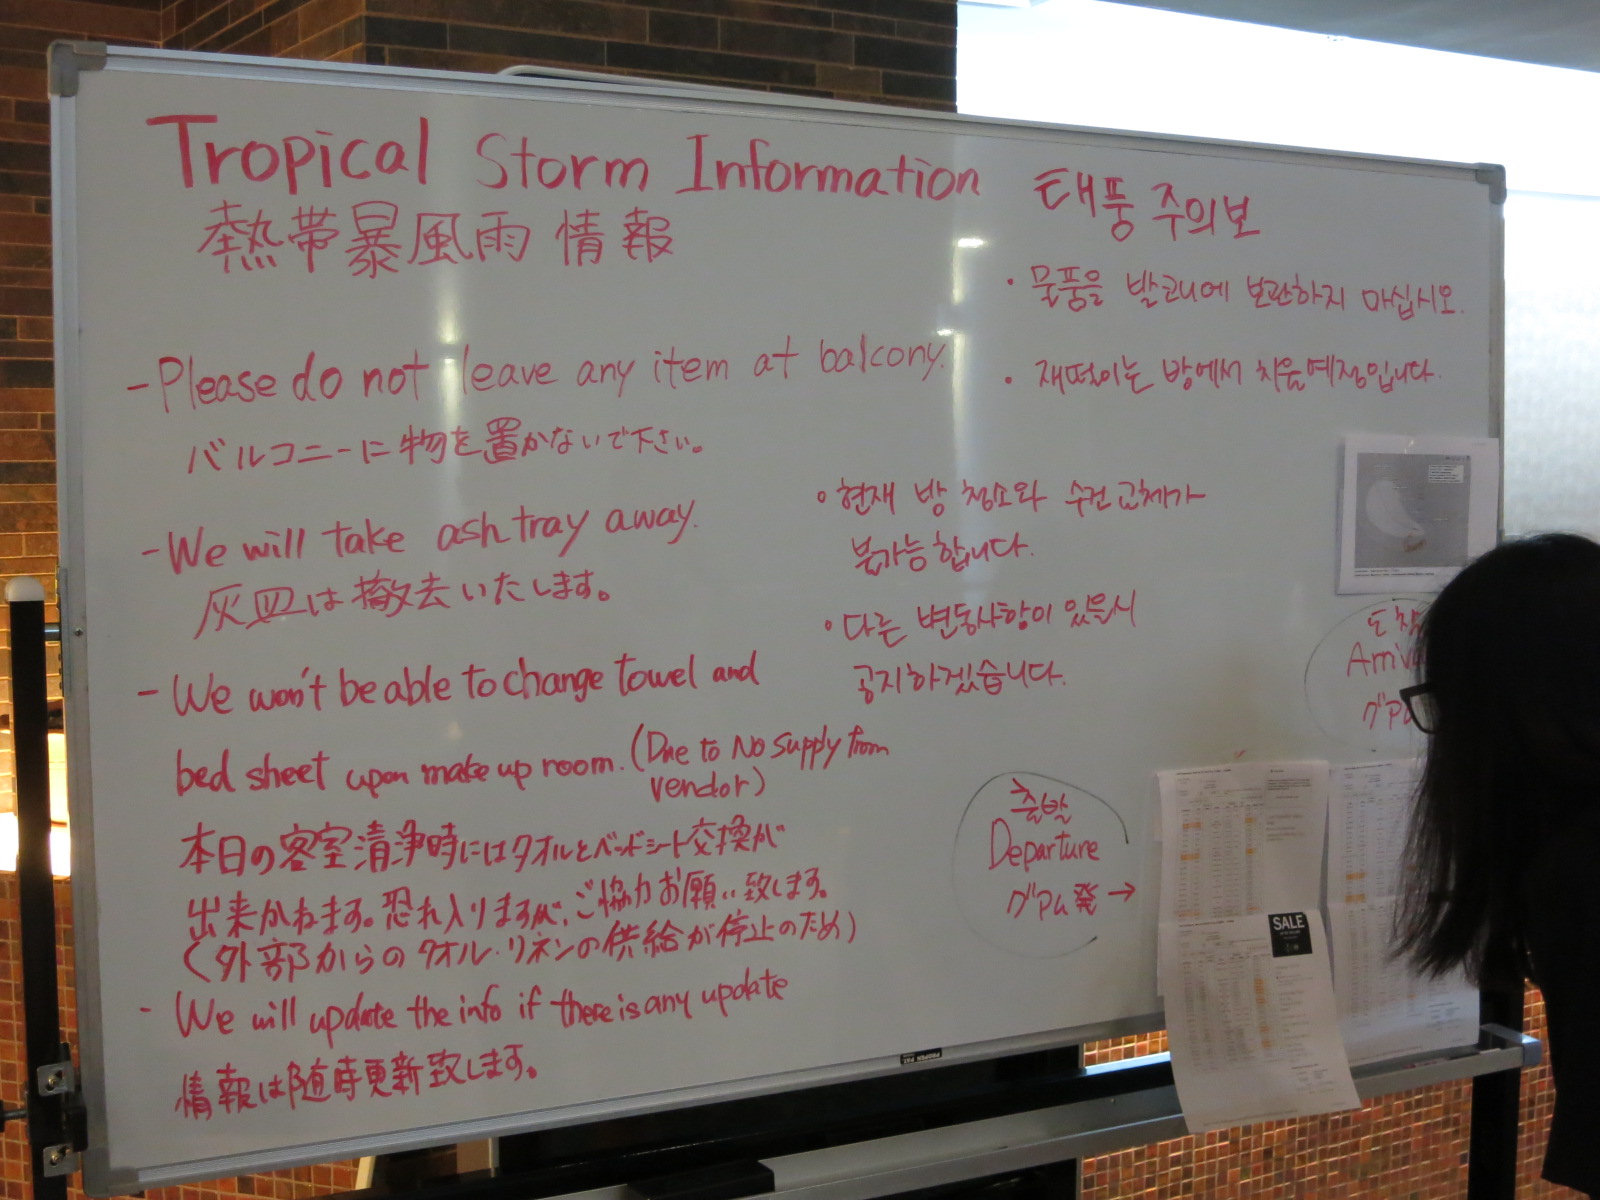 Tropical Storm Information
熱帯暴風雨 情報
- Please do not leave any item at balcony.
バルコニーに物を置かないで下さい。
- We will take ash tray away.
灰皿は撤去いたします。
- We won't be able to change towel and
bed sheet upon make up room. (Due to No supply from
vendor)
本日の客室清浄時にはタオルとベッドシート交換が
出来かねます。恐れ入りますが、ご協力お願い致します。
(外部からのタオル・リネンの供給が停止のため)
- We will update the info if there is any update
情報は随時更新致します。
태풍 주의보
· 물품을 발코니에 보관하지 마십시오.
· 재떨이는 방에서 치울예정입니다.
· 현재 방 청소와 수건교체가
불가능합니다.
· 다른 변동사항이 있을시
공지하겠습니다.
도착
출발
Departure
グアム発 →
SALE
PROPER PAT.